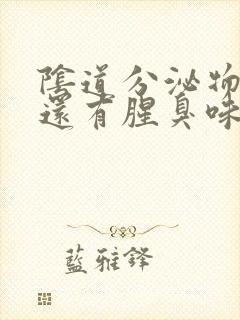 陰道分泌物
還有腥臭味
藍雅鋒